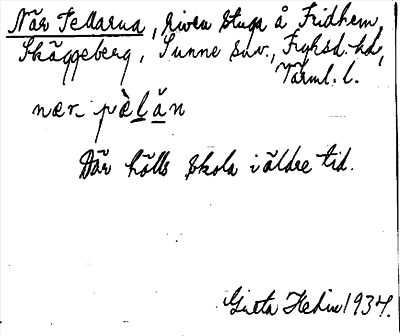 När Pellarna, riven stuga å Fridhem,
Skäggeberg, Sunne snv., Fryksd. hd,
Värml. l.
nær pèlạ̈n
Där hölls skola i äldre tid.
Greta Hedin 1934.